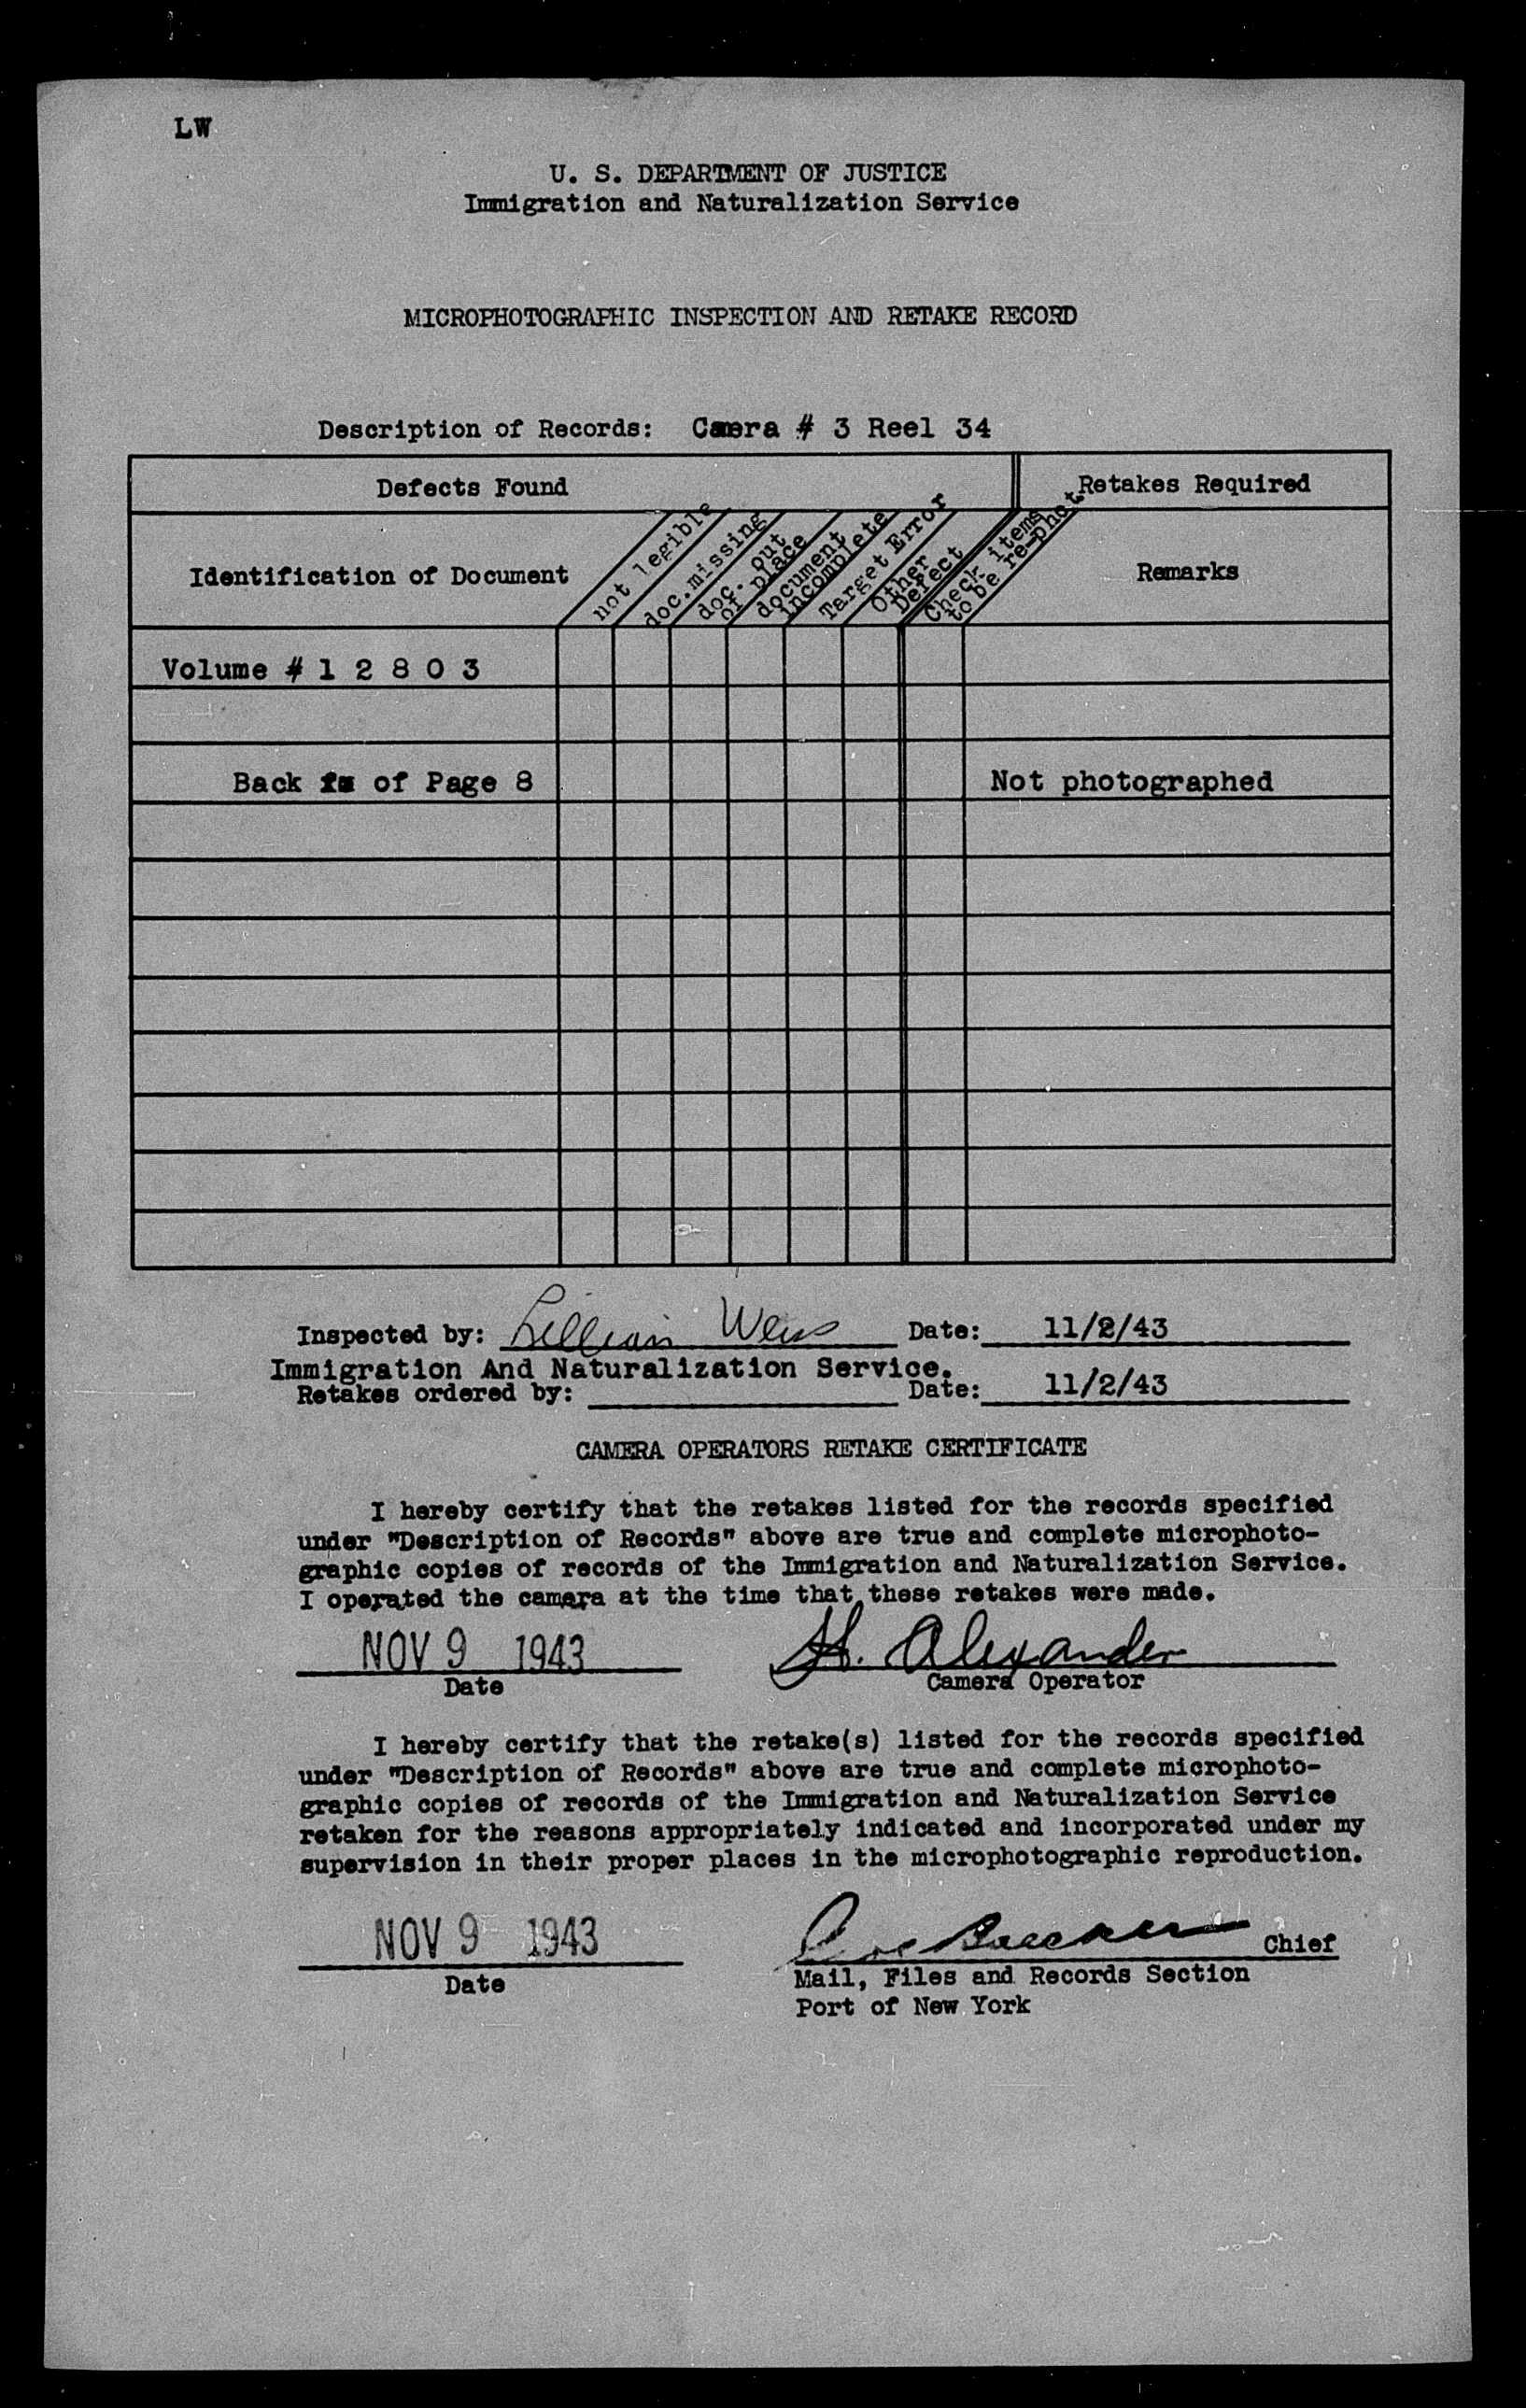 LW
U. S. DEPARTMENT OF JUSTICE
Immigration and Naturalization Service
MICROPHOTOGRAPHIC INSPECTION AND RETAKE RECORD
Description of Records: Camera # 3 Reel 34
Defects Found
Retakes Required
Identification of Document
not legible
doc.missing
doc. out
of place
document
incomplete
Target Error
Other
Defect
Check items
to be re-phot.
Remarks
Volume # 1 2 8 0 3
Back of Page 8
Not photographed
Inspected by: Lillian Weiss Date: 11/2/43
Immigration And Naturalization Service.
Retakes ordered by: Date: 11/2/43
CAMERA OPERATORS RETAKE CERTIFICATE
I hereby certify that the retakes listed for the records specified
under "Description of Records" above are true and complete microphoto-
graphic copies of records of the Immigration and Naturalization Service.
I operated the camera at the time that these retakes were made.
NOV 9 1943 H. Alexander
Date Camera Operator
I hereby certify that the retake(s) listed for the records specified
under "Description of Records" above are true and complete microphoto-
graphic copies of records of the Immigration and Naturalization Service
retaken for the reasons appropriately indicated and incorporated under my
supervision in their proper places in the microphotographic reproduction.
NOV 9 1943 Chief
Date
Mail, Files and Records Section
Port of New York